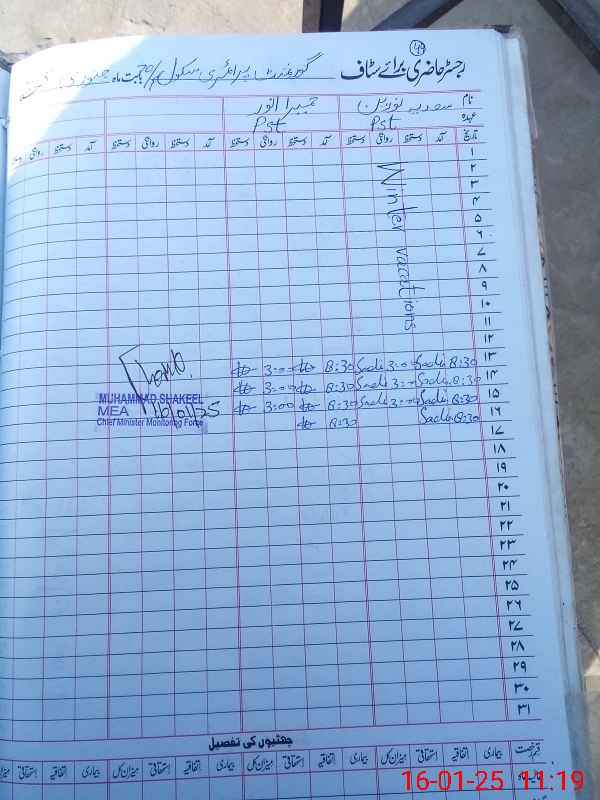 49
رجسٹر حاضری برائے سٹاف گورنمنٹ پرائمری سکول بابت ماہ جنوری
نام سعدیہ نورین حمیرا انور
عہدہ Pst Pst
تاریخ آمد دستخط روانگی دستخط آمد دستخط روانگی دستخط آمد دستخط روانگی دستخط آمد دستخط روانگی
۱
۲
۳
۴
۵
۶
۷
۸
۹
۱۰
۱۱
۱۲
Winter vacations
۱۳ 8:30 Sadi 3:00 Sadi 8:30 3:00
۱۴ 8:30 Sadi 3:00 Sadi 8:30 3:00
۱۵ 8:30 Sadi 3:00 Sadi 8:30 3:00
۱۶ 8:30 Sadi 8:30
MUHAMMAD SHAKEEL
MEA 16/01/25
Chief Minister Monitoring Force
۱۷
۱۸
۱۹
۲۰
۲۱
۲۲
۲۳
۲۴
۲۵
۲۶
۲۷
۲۸
۲۹
۳۰
۳۱
چھٹیوں کی تفصیل
قسم رخصت بیماری اتفاقیہ استحقاقی میزان کل بیماری اتفاقیہ استحقاقی میزان کل بیماری اتفاقیہ استحقاقی میزان کل بیماری اتفاقیہ استحقاقی میزان
16-01-25 11:19